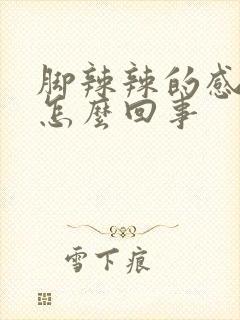 脚辣辣的感
怎麼回事
雪下痕